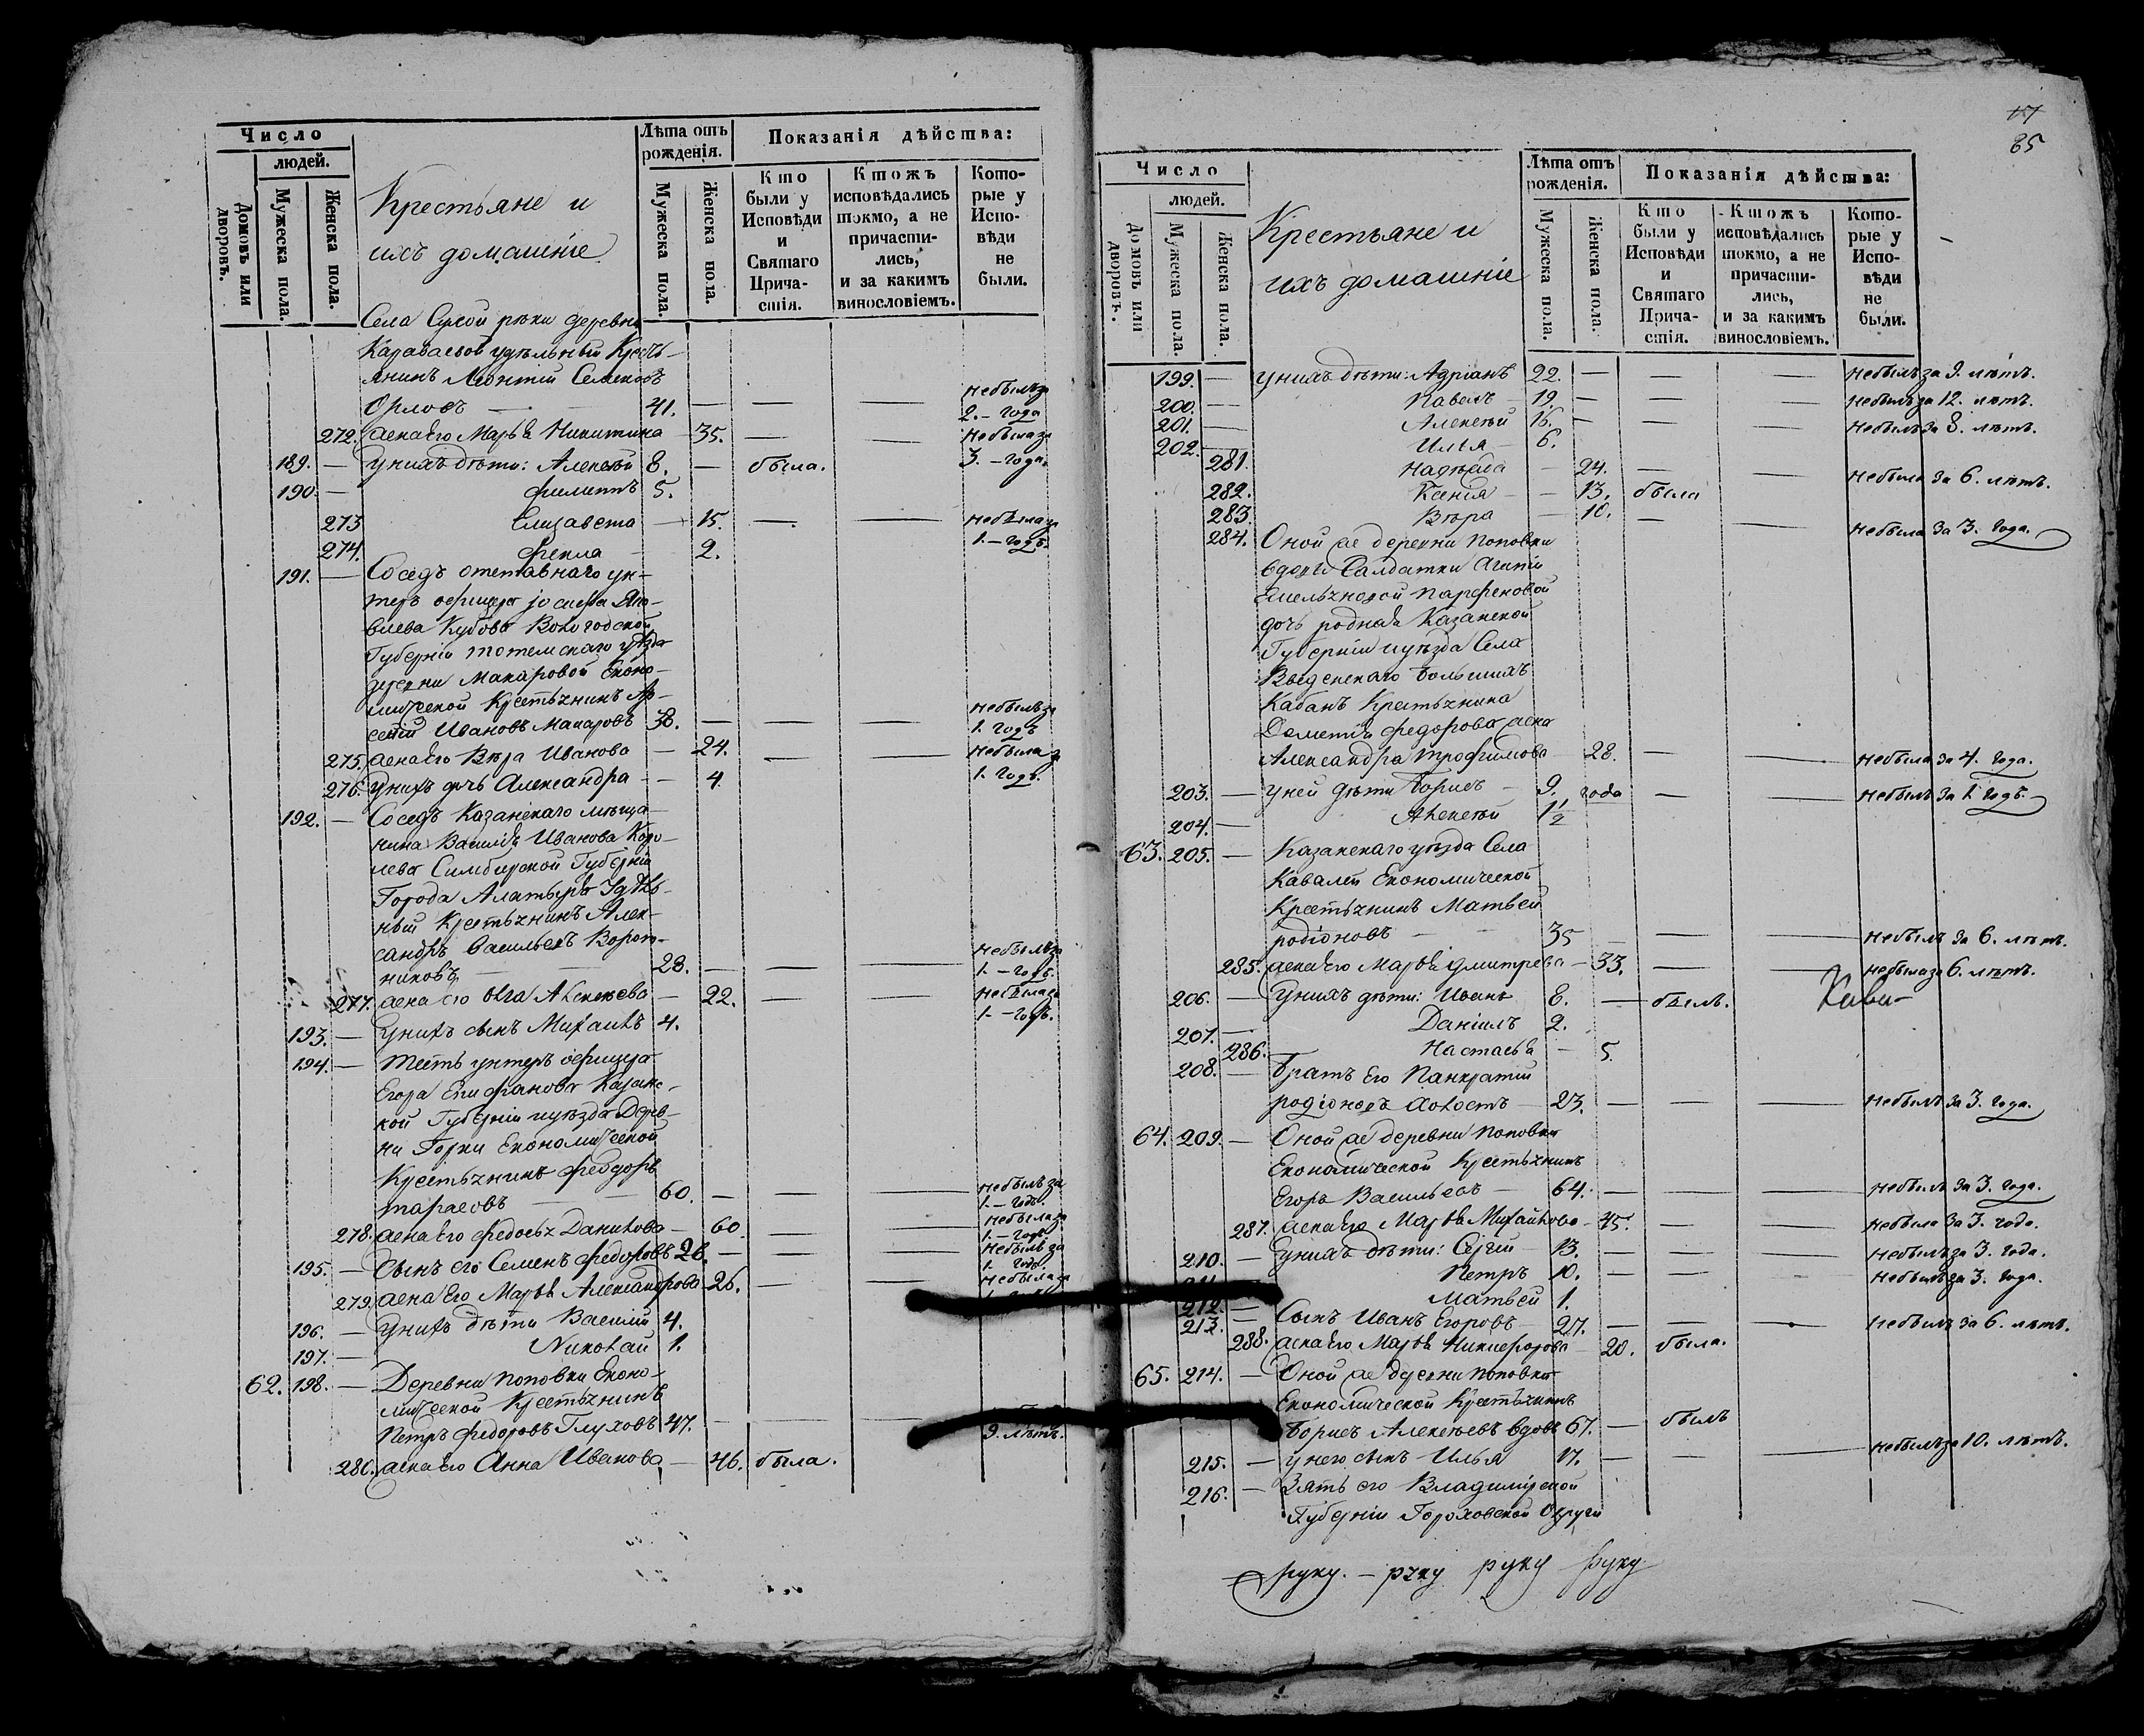 Число
людей.
Домовъ или дворовъ.
Мужеска пола.
Женска пола.
Крестьяне и
ихъ домашніе
Лѣта отъ
рожденія.
Мужеска пола.
Женска пола.
Показанія дѣйства:
Кто были у Исповѣди и Святаго Причастія.
Ктожъ исповѣдались токмо, а не причастились, и за какимъ винословіемъ.
Которые у Исповѣди не были.
Села Сухой рѣки деревни
Караваевой удѣльный Кресть-
янинъ Леонтій Семеновъ
Орловъ — 41. — — — небылъ за 2. года
272. жена его Марья Никитина — 35. — — небыла за 3. года.
189. — у нихъ дѣти: Алексѣй 8. — была.
190. — Филиппъ 5.
273 Елизавета — 15. — — небыла за 1. годъ.
274. Фекла — 2.
191. — Сосѣдъ отставнаго ун-
теръ офицера Іосифа Яко-
влева Кубова Вологодской
Губерніи Тотемскаго уѣзда
деревни Макаровой Еконо-
мической Крестьянинъ Ар-
сеній Ивановъ Макаровъ 38. — — — небылъ за 1. годъ
275. жена его Вѣра Иванова — 24. — — небыла за 1. годъ.
276. у нихъ дочь Александра — 4.
192. — Сосѣдъ Казанскаго мѣща-
нина Василья Иванова Коро-
лева Симбирской Губерніи
Города Алатыря Удѣль-
ный Крестьянинъ Алек-
сандръ Васильевъ Ворот-
никовъ — 28. — — — небылъ за 1. годъ.
277. жена его Ольга Алексѣева — 22. — — небыла за 1. годъ.
193. — у нихъ сынъ Михаилъ 4.
194. — Тесть унтеръ офицера
Егора Епифанова Казанс-
кой Губерніи и уѣзда Дерев-
ни Горки Економической
Крестьянинъ Феодоръ
Тарасовъ — 60. — — — небылъ за 1. годъ.
278. жена его Федосья Данилова — 60. — — небыла за 1. годъ.
195. — Сынъ его Семенъ Федоровъ 26. — — — небылъ за 1. годъ.
279. жена его Марья Александрова — 26. — — небыла за
196. — у нихъ дѣти Василій 4.
197. — Николай 1.
62. 198. — Деревни Поповки Еконо-
мической Крестьянинъ
Петръ Федоровъ Глуховъ 47. — — — 9. лѣтъ.
280. жена его Анна Иванова — 46. была.
17
85
Число
людей.
Домовъ или дворовъ.
Мужеска пола.
Женска пола.
Крестьяне и
ихъ домашніе
Лѣта отъ
рожденія.
Мужеска пола.
Женска пола.
Показанія дѣйства:
Кто были у Исповѣди и Святаго Причастія.
Ктожъ исповѣдались токмо, а не причастились, и за какимъ винословіемъ.
Которые у Исповѣди не были.
199. — у нихъ дѣти: Адріанъ 22. — — — небылъ за 9. лѣтъ.
200. — Павелъ 19. — — — небылъ за 12. лѣтъ.
201. — Алексѣй 15. — — — небылъ за 8. лѣтъ.
202. — Илья — 6.
281. Надежда — 24. — — небыла за 6. лѣтъ.
282. Ксенія — 13. была
283. Вѣра — 10. — — небыла за 3. года.
284. Оной же деревни Поповки
вдовы Салдатки Агапіи
Емельяновой Парфеновой
дочь родная Казанской
Губерніи и уѣзда Села
Введенскаго Большихъ
Кабанъ Крестьянина
Дометія Федорова жена
Александра Трофимова — 28. — — небыла за 4. года.
203. — у ней дѣти Борисъ — 9. года — — небылъ за 1. годъ.
204. — Алексѣй 1 1/2
63. 205. — Казанскаго уѣзда Села
Кавалей Економической
Крестьянинъ Матвей
Родіоновъ — 35 — — — небылъ за 6. лѣтъ.
285. жена его Марья Дмитрева — 33. — — небыла за 6. лѣтъ.
206. — у нихъ дѣти: Иванъ 8. — былъ.
207. — Даніилъ 2.
286. Настасья — 5.
208. — Братъ его Панкратій
Родіоновъ холостъ — 23. — — — небылъ за 3. года.
64. 209. — Оной же деревни Поповки
Економической Крестьянинъ
Егоръ Васильевъ — 64. — — — небылъ за 3. года.
287. жена его Марья Михайлова — 45. — — небыла за 3. года.
210. — у нихъ дѣти: Сергій — 13. — — — небылъ за 3. года.
211. Петръ 10. — — — небылъ за 3. года.
212. — Матвей 1.
213. — Сынъ Иванъ Егоровъ — 27. — — — небылъ за 6. лѣтъ.
288. жена его Марья Никифорова — 20. была.
65. 214. — Оной же деревни Поповки
Економической Крестьянинъ
Борисъ Алексѣевъ вдовъ 67. — былъ
215. — у него сынъ Илья 17. — — — небылъ за 10. лѣтъ.
216. — Зять его Владимірской
Губерніи Гороховской Округи
руку. — руку руку руку